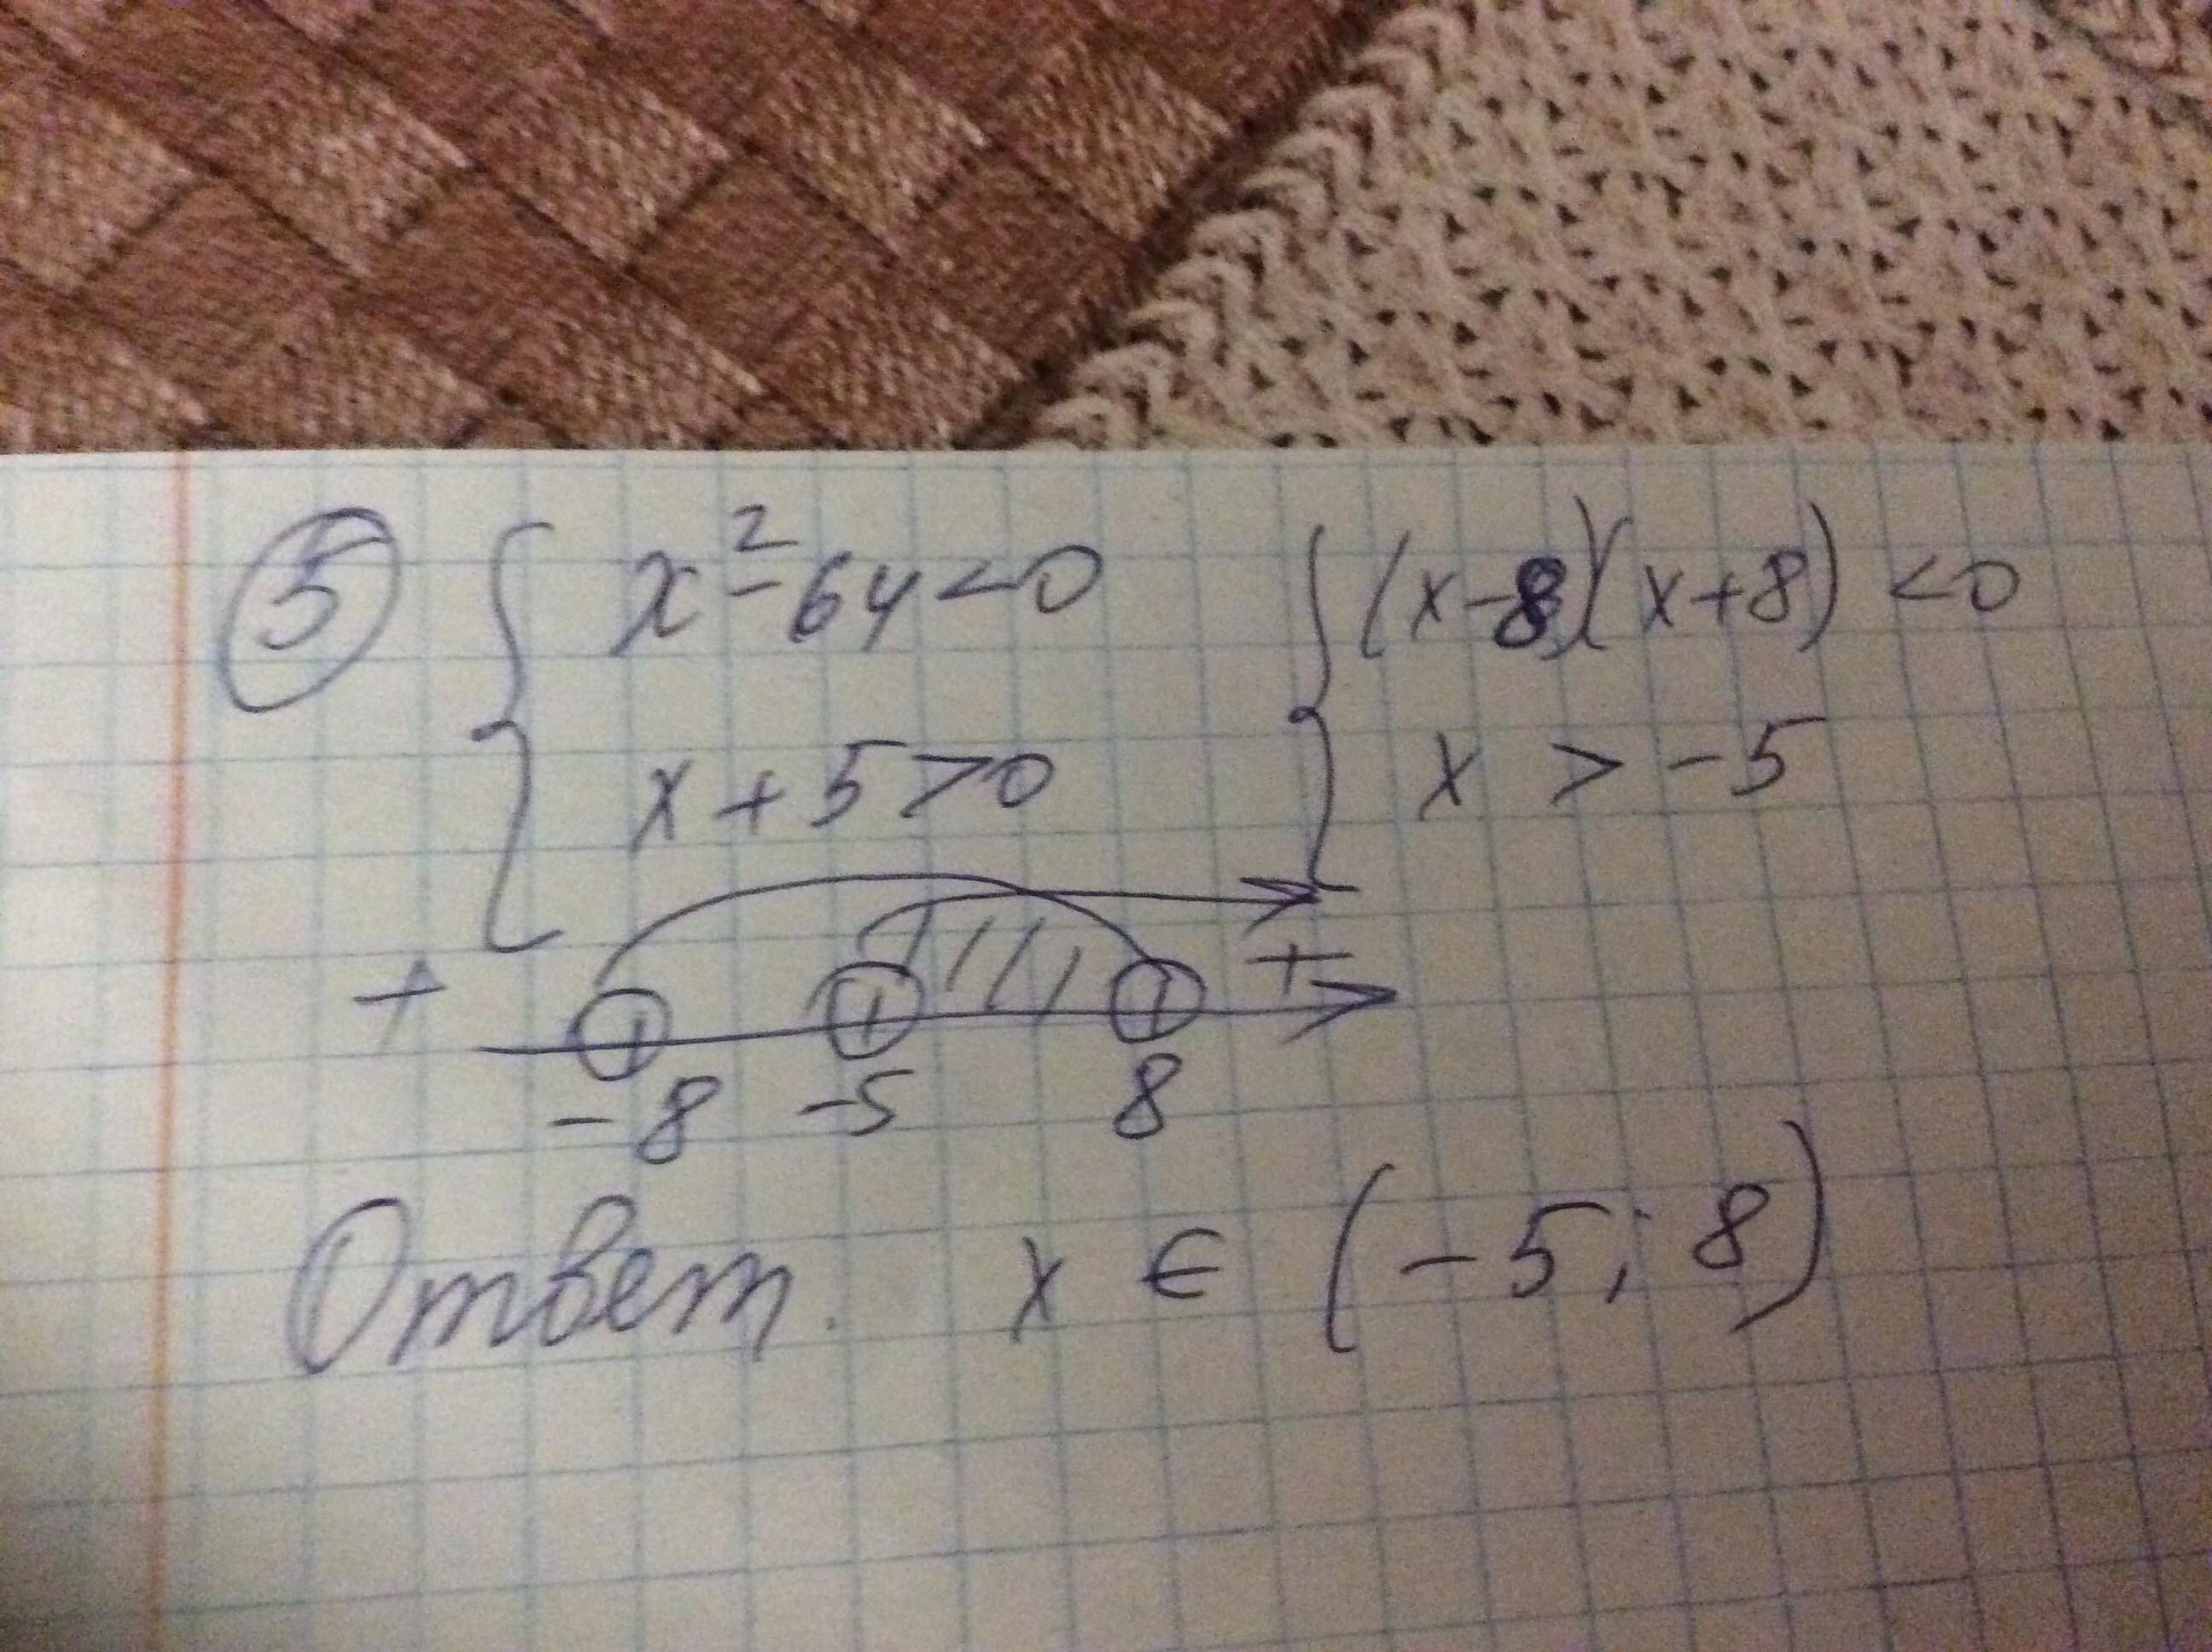 5 { x² - 64 < 0 { (x-8)(x+8) < 0
x + 5 > 0 x > -5
+ +
-8 -5 8
Ответ. x ∈ (-5; 8)